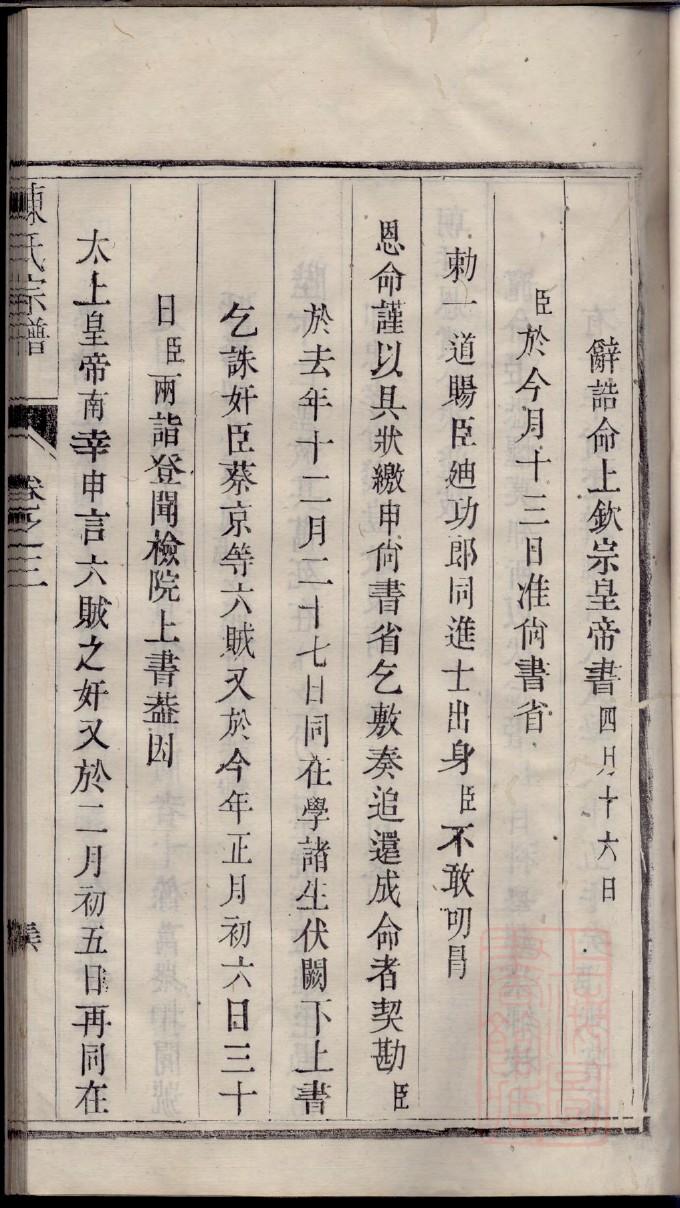 辭誥命上欽宗皇帝書四月十六日
臣於今月十三日准尙書省
勅一道賜臣廸功郎同進士出身臣不敢明冐
恩命謹以具狀繳申尙書省乞敷奏追還成命者契勘臣
於去年十二月二十七日同在學諸生伏闕下上書
乞誅奸臣蔡京等六賊又於今年正月初六日三十
日臣兩詣登聞檢院上書葢因
太上皇帝南幸申言六賊之奸又於二月初五日再同在
陳氏宗譜
卷之三